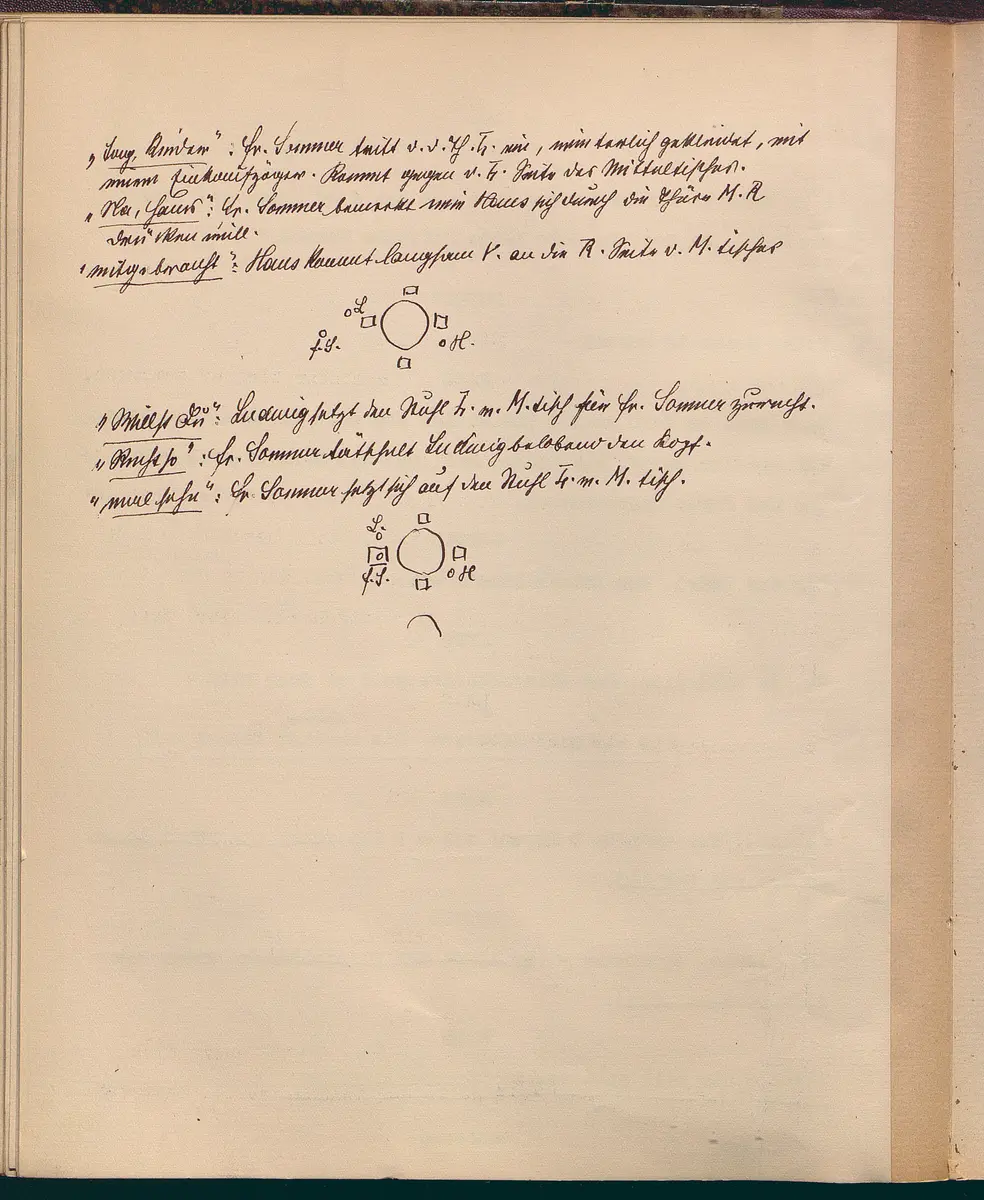 „Tag, Kinder“: Fr. Sommer tritt d. d. Th. L. ein, winterlich gekleidet, mit
einem Einkaufzöger. Kommt gegen d. L. Seite des Mitteltisches.
„Na, Hans“: Fr. Sommer bemerkt wie Hans sich durch die Thüre M. R
drücken will.
„mitgebracht“: Hans kommt langsam V. an die R. Seite d. M. tisches
L
f. S. H.
„Willst Du“: Ludwig setzt den Stuhl L. v. M. tisch für Fr. Sommer zurecht.
„Recht so“: Fr. Sommer tätschelt Ludwig belobend den Kopf.
„mal sehn“: Fr. Sommer setzt sich auf den Stuhl L. v. M. tisch.
L.
f. S. H